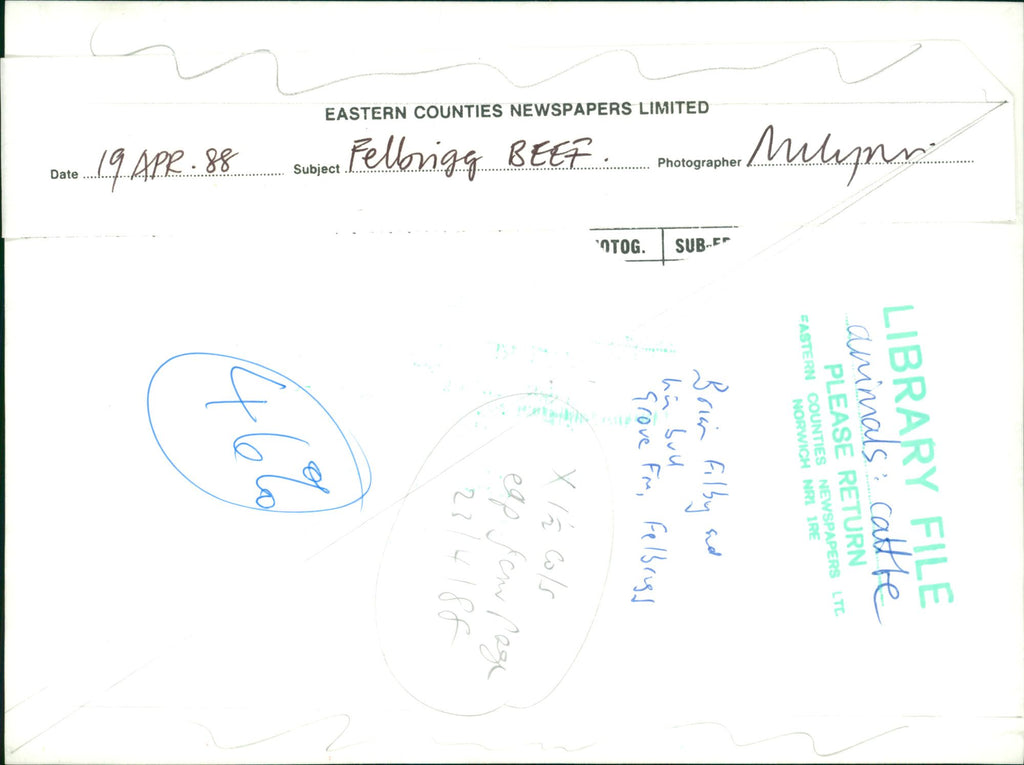 EASTERN COUNTIES NEWSPAPERS LIMITED
Date 19 APR. 88 Subject Felbrigg BEEF. Photographer
OTOG. SUB-ED
LIBRARY FILE
animals: cattle
PLEASE RETURN
EASTERN COUNTIES NEWSPAPERS LTD
NORWICH NR1 1RE
Brian Filby and
his bull
Grove Fm, Felbrigg
X 1½ cols
edp farm page
23/4/88
46%